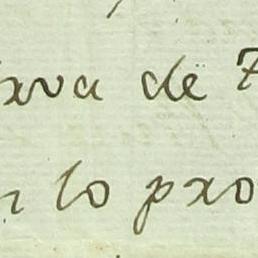 xva de
lo pro